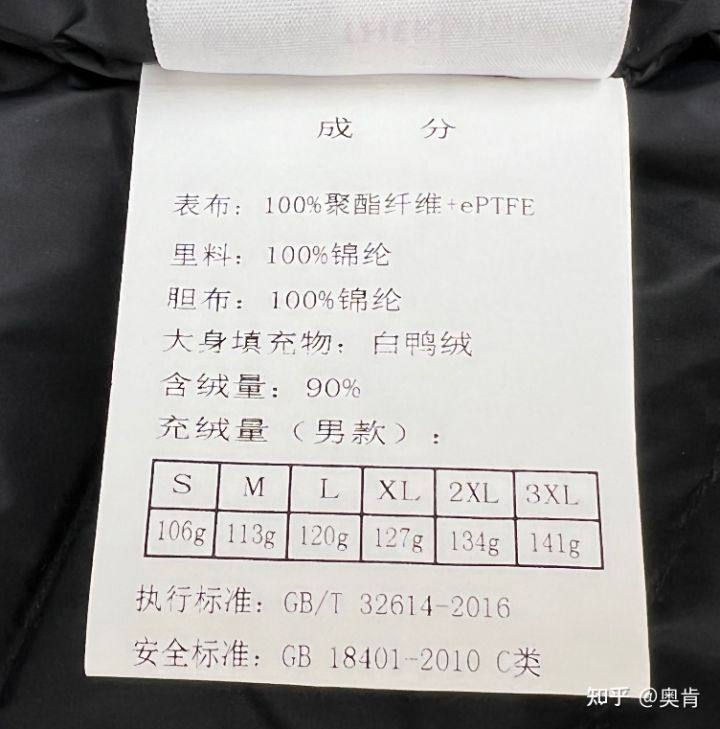 成 分
表布：100%聚酯纤维+ePTFE
里料：100%锦纶
胆布：100%锦纶
大身填充物：白鸭绒
含绒量：90%
充绒量（男款）：
S M L XL 2XL 3XL
106g 113g 120g 127g 134g 141g
执行标准：GB/T 32614-2016
安全标准：GB 18401-2010 C类
知乎 @奥肯